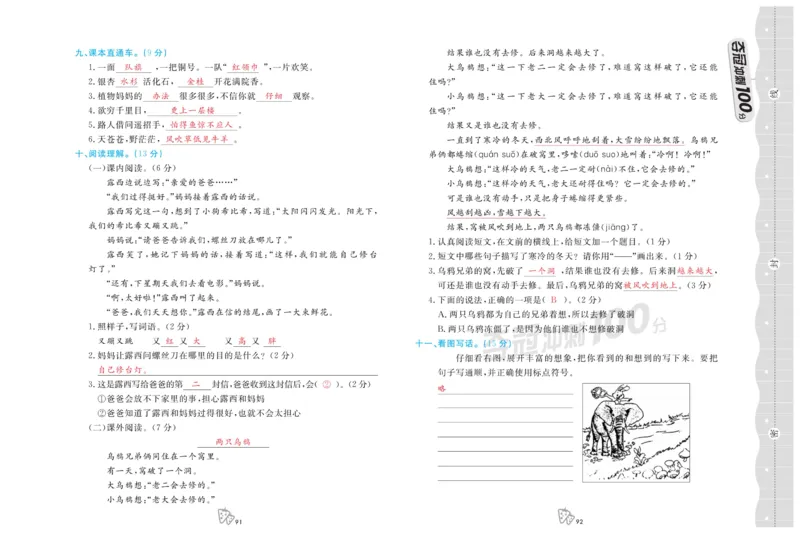 九、课本直通车。(9 分)
1.一面 队旗 ,一把铜号。一队“ 红领巾 ”,一片欢笑。
2.银杏 水杉 活化石, 金桂 开花满院香。
3.植物妈妈的 办法 很多很多,不信你就 仔细 观察。
4.欲穷千里目, 更上一层楼 。
5.路人借问遥招手, 怕得鱼惊不应人 。
6.天苍苍,野茫茫, 风吹草低见牛羊 。
十、阅读理解。(13 分)
(一)课内阅读。(6 分)
露西边说边写:“亲爱的爸爸……”
“我们过得挺好。”妈妈接着露西的话说。
露西写完这一句,想到了小狗希比希,写道:“太阳闪闪发光。阳光下,
我们的希比希又蹦又跳。”
妈妈说:“请爸爸告诉我们,螺丝刀放在哪儿了。”
露西笑了,她记下妈妈的话,接着写道:“这样,我们就能自己修台
灯了。”
“还有,下星期天我们去看电影。”妈妈说。
“啊,太好啦!”露西叫了起来。
“爸爸,我们天天想你。”露西在信的结尾,画了一大束鲜花。
1.照样子,写词语。(2 分)
又蹦又跳 又 红 又 大 又 高 又 胖
2.妈妈让露西问螺丝刀在哪里的目的是什么? (2 分)
自己修台灯。
3.这是露西写给爸爸的第 二 封信,爸爸收到这封信后,会( ② )。(2 分)
①爸爸会放不下家里的事,担心露西和妈妈
②爸爸知道了露西和妈妈过得很好,也就不会太担心
(二)课外阅读。(7 分)
两只乌鸦
乌鸦兄弟俩同住在一个窝里。
有一天,窝破了一个洞。
大乌鸦想:“老二会去修的。”
小乌鸦想:“老大会去修的。”
91
结果谁也没有去修。后来洞越来越大了。
大乌鸦想:“这一下老二一定会去修了,难道窝这样破了,它还能
住吗?”
小乌鸦想:“这一下老大一定会去修了,难道窝这样破了,它还能
住吗?”
结果又是谁也没有去修。
一直到了寒冷的冬天,西北风呼呼地刮着,大雪纷纷地飘落。乌鸦兄
弟俩都蜷缩(quán suō)在破窝里,哆嗦(duō suo)地叫着:“冷啊! 冷啊!”
大乌鸦想:“这样冷的天气,老二一定耐(nài)不住,它会去修的。”
小乌鸦想:“这样冷的天气,老大还耐得住吗? 它一定会去修的。”
可是谁也没有动手,只是把身子蜷缩得更紧些。
风越刮越凶,雪越下越大。
结果,窝被风吹到地上,两只乌鸦都冻僵(jiāng)了。
1.认真阅读短文,在文前的横线上,给短文加一个题目。(1 分)
2.短文中哪些句子描写了寒冷的冬天? 请你用“——”画出来。(1 分)
3.乌鸦兄弟的窝,先破了 一个洞 ,结果谁也没有去修。后来洞越来越大,
可还是谁也没有动手去修。最后,乌鸦兄弟的窝被风吹到地上。(3 分)
4.下面的说法,正确的一项是( B )。(2 分)
A.两只乌鸦都为自己的兄弟着想,所以去修了破洞
B.两只乌鸦冻僵了,是因为他们谁也不想修破洞
十一、看图写话。(15 分)
仔细看右图,展开丰富的想象,把你看到的和想到的写下来。要把
句子写通顺,并正确使用标点符号。
略
92
夺冠冲刺100分
夺冠冲刺100分
线
封
密